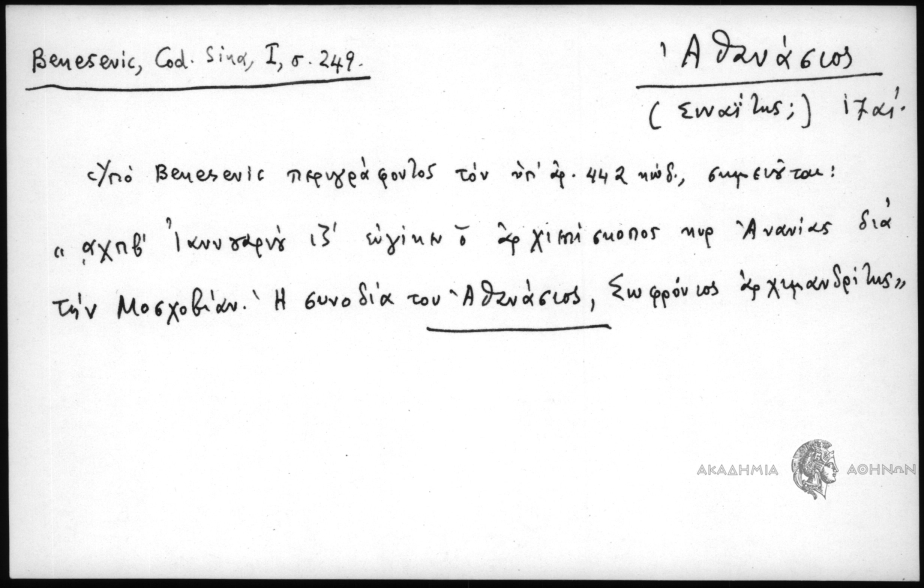 Benesevic, Cod. Sina, I, σ. 249.
Ἀθανάσιος
(Σιναΐτης;) ιζ αἰ.
Ὑπὸ Benesevic περιγράφοντος τὸν ὑπ' ἀρ. 442 κώδ., σημειοῦται:
"αχπβ' Ἰαννουαρίου ιζ' εὐγῆκεν ὁ ἀρχιεπίσκοπος κυρ Ἀνανίας διὰ
τὴν Μοσχοβίαν. Ἡ συνοδία του Ἀθανάσιος, Σωφρόνιος ἀρχιμανδρίτης"
ΑΚΑΔΗΜΙΑ ΑΘΗΝΩΝ